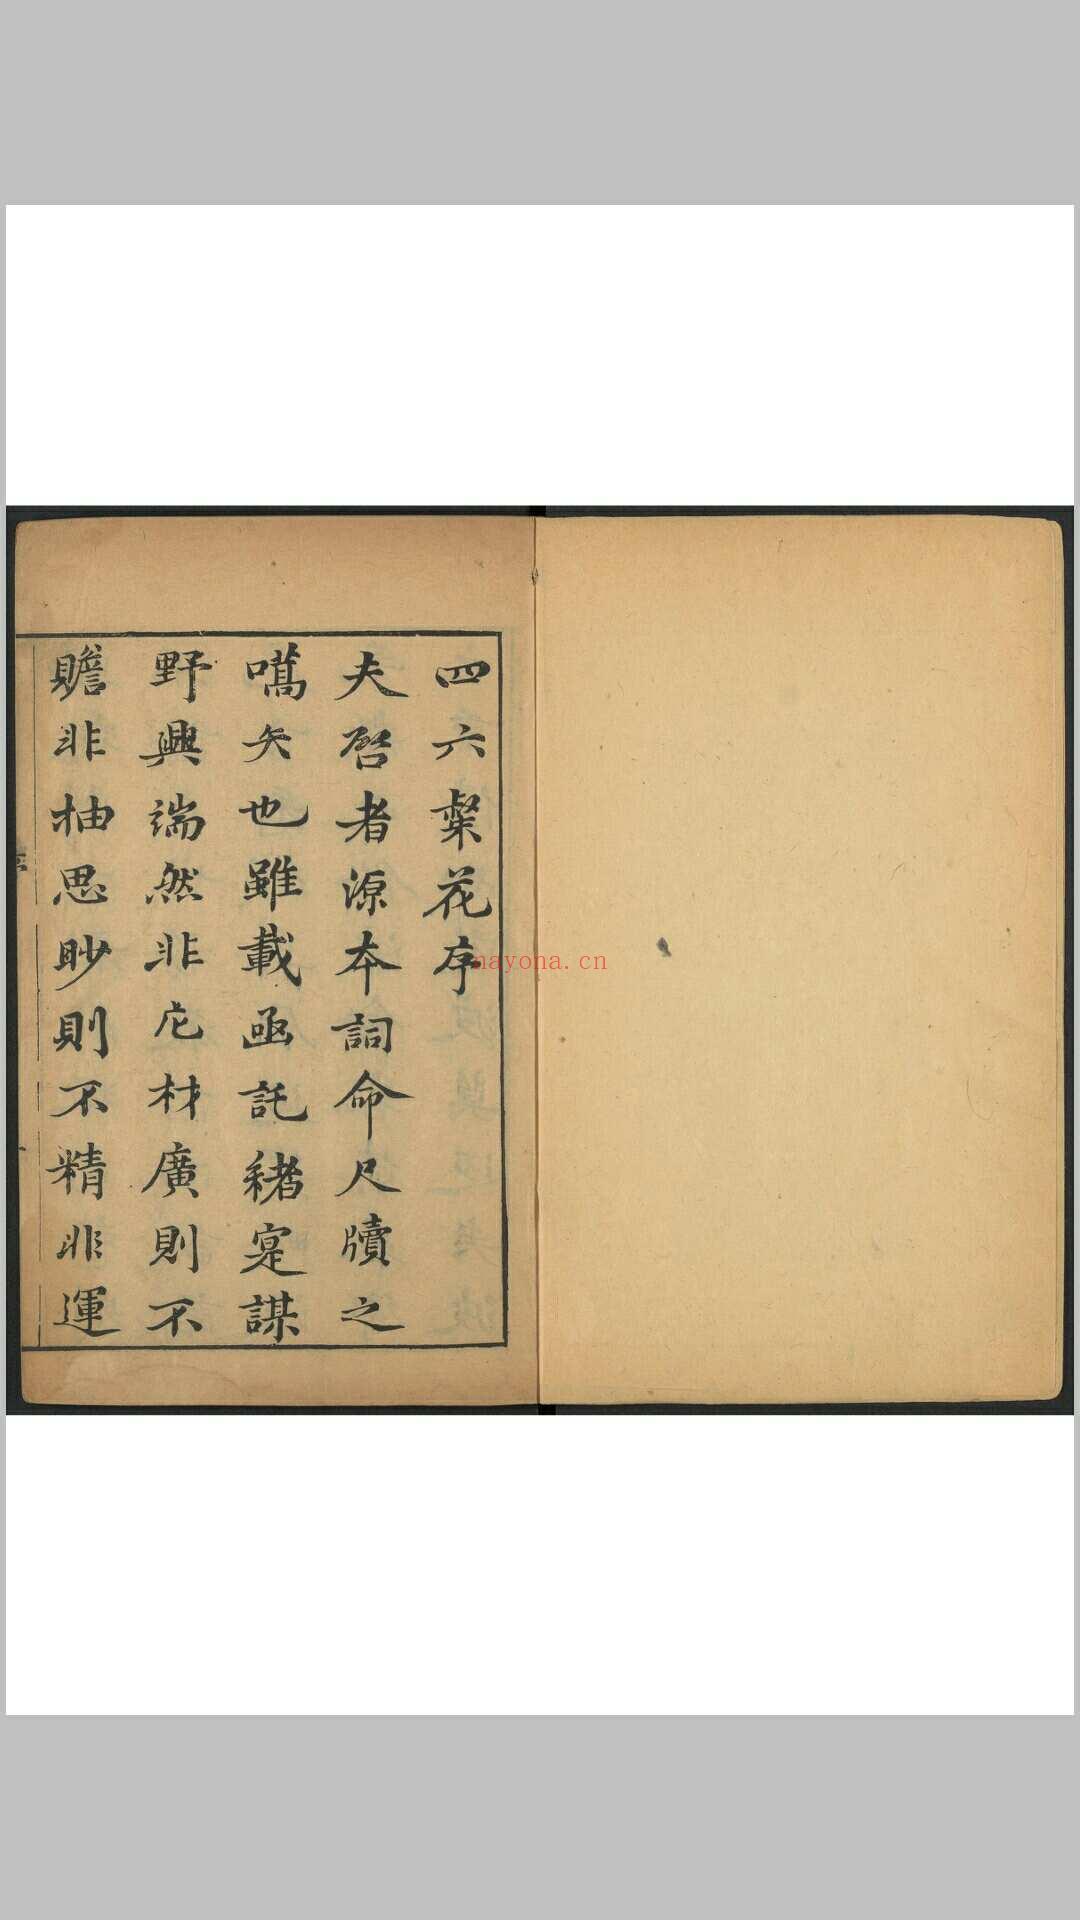 四六粲花序
夫启者源本詞命尺牘之
嚆矢也雖載函託緒寔謀
野興端然非庀材廣則不
贍非抽思眇則不精非運
nayona.cn